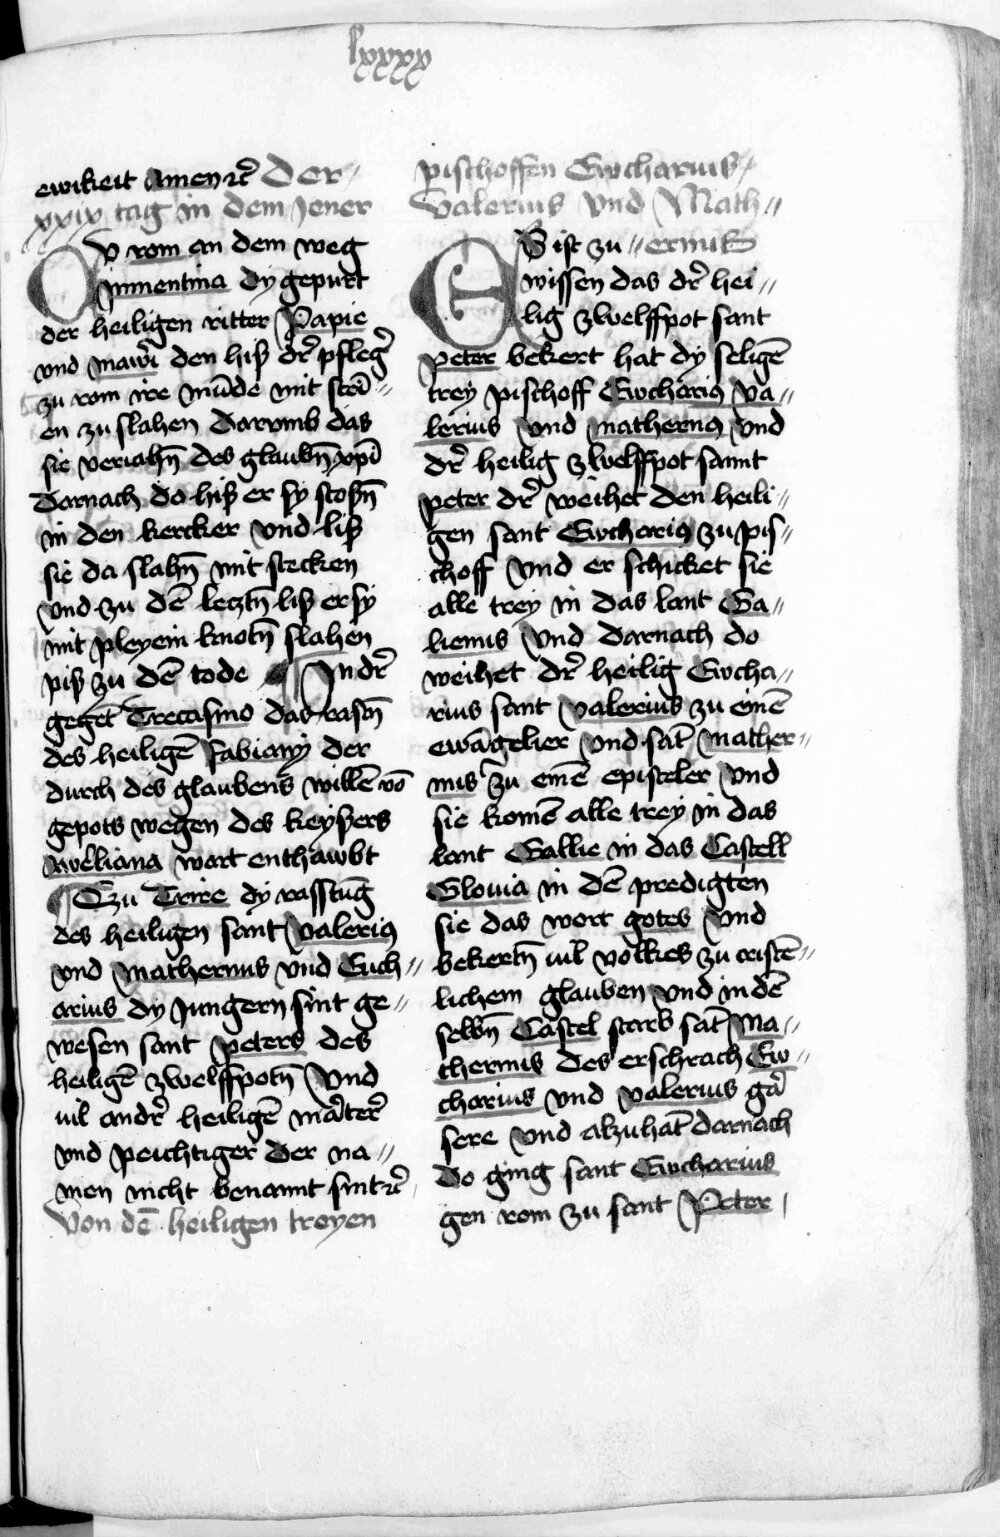 lxxxx
ewikeit Amen ⁊c̄ Der
xxix tag in dem Jener
Zv rom an dem weg
Jnmentina dy gepurt
der heiligen ritter Papie
vnd maw̄i den hiß dr̄ pfleḡ
zu rom ire mūde mit stei
en zu slahen Darvmb das
sie veriahn̄ des glaubn̄ xp̄i
Darnach do hiß er sy stoßn̄
in den kercker vnd liß
sie da slahn̄ mit stecken
vnd zu dē lecztn̄ liß er sy
mit pleyein knotn̄ slahen
piß zu dē tode ¶ Jn dr̄
gegēt Trecasmo das rastn̄
des heiligē Fabiany der
durch des glaubens willē vō
gepots wegen des keysers
Awēliana wart enthawbt
¶ Czu Trire dy rasstūg
des heiligen sant Valeriꝯ
vnd Mathernus vnd Euch//
arius dy Jungern sint ge//
wesen sant peters des
heiligē zwelffpotn̄ Vnd
uil andr̄ heiligē mārterr̄
vnd peichtiger der na//
men nicht benannt sint ⁊c̄
Von dē heiligen treyen
pischoffen Ewcharius/
Valerius vnd Math//
ernus
ES ist zu
wissen das dr̄ hei//
lig zwelffpot sant
peter bekert hat dy seligē
trey pischoff Ewchariꝯ Va//
lerius vnd mathernꝯ vnd
dr̄ heilig zwelffpot sannt
peter dr̄ weihet den heili//
gen sant Ewchariꝯ zu pis//
choff vnd er schicket sie
alle trey in das lant Ga//
lienus vnd darnach do
weihet dr̄ heilig Ewcha//
rius sant Valerius zu einē
ewāgelier vnd sāt mather//
nus zu einē episteler vnd
sie komē alle trey in das
lant Gallie in das Castell
Glouia in dē predigten
sie das wort gotes vnd
bekertn̄ uil volkes zu cristē//
lichem glauben vnd in dē
selbn̄ Castel starb sāt Ma//
thernus des erschrach Ew//
charius vnd valerius gār
sere vnd alzuhāt darnach
do ging sant Ewcharius
gen rom zu sant Peter